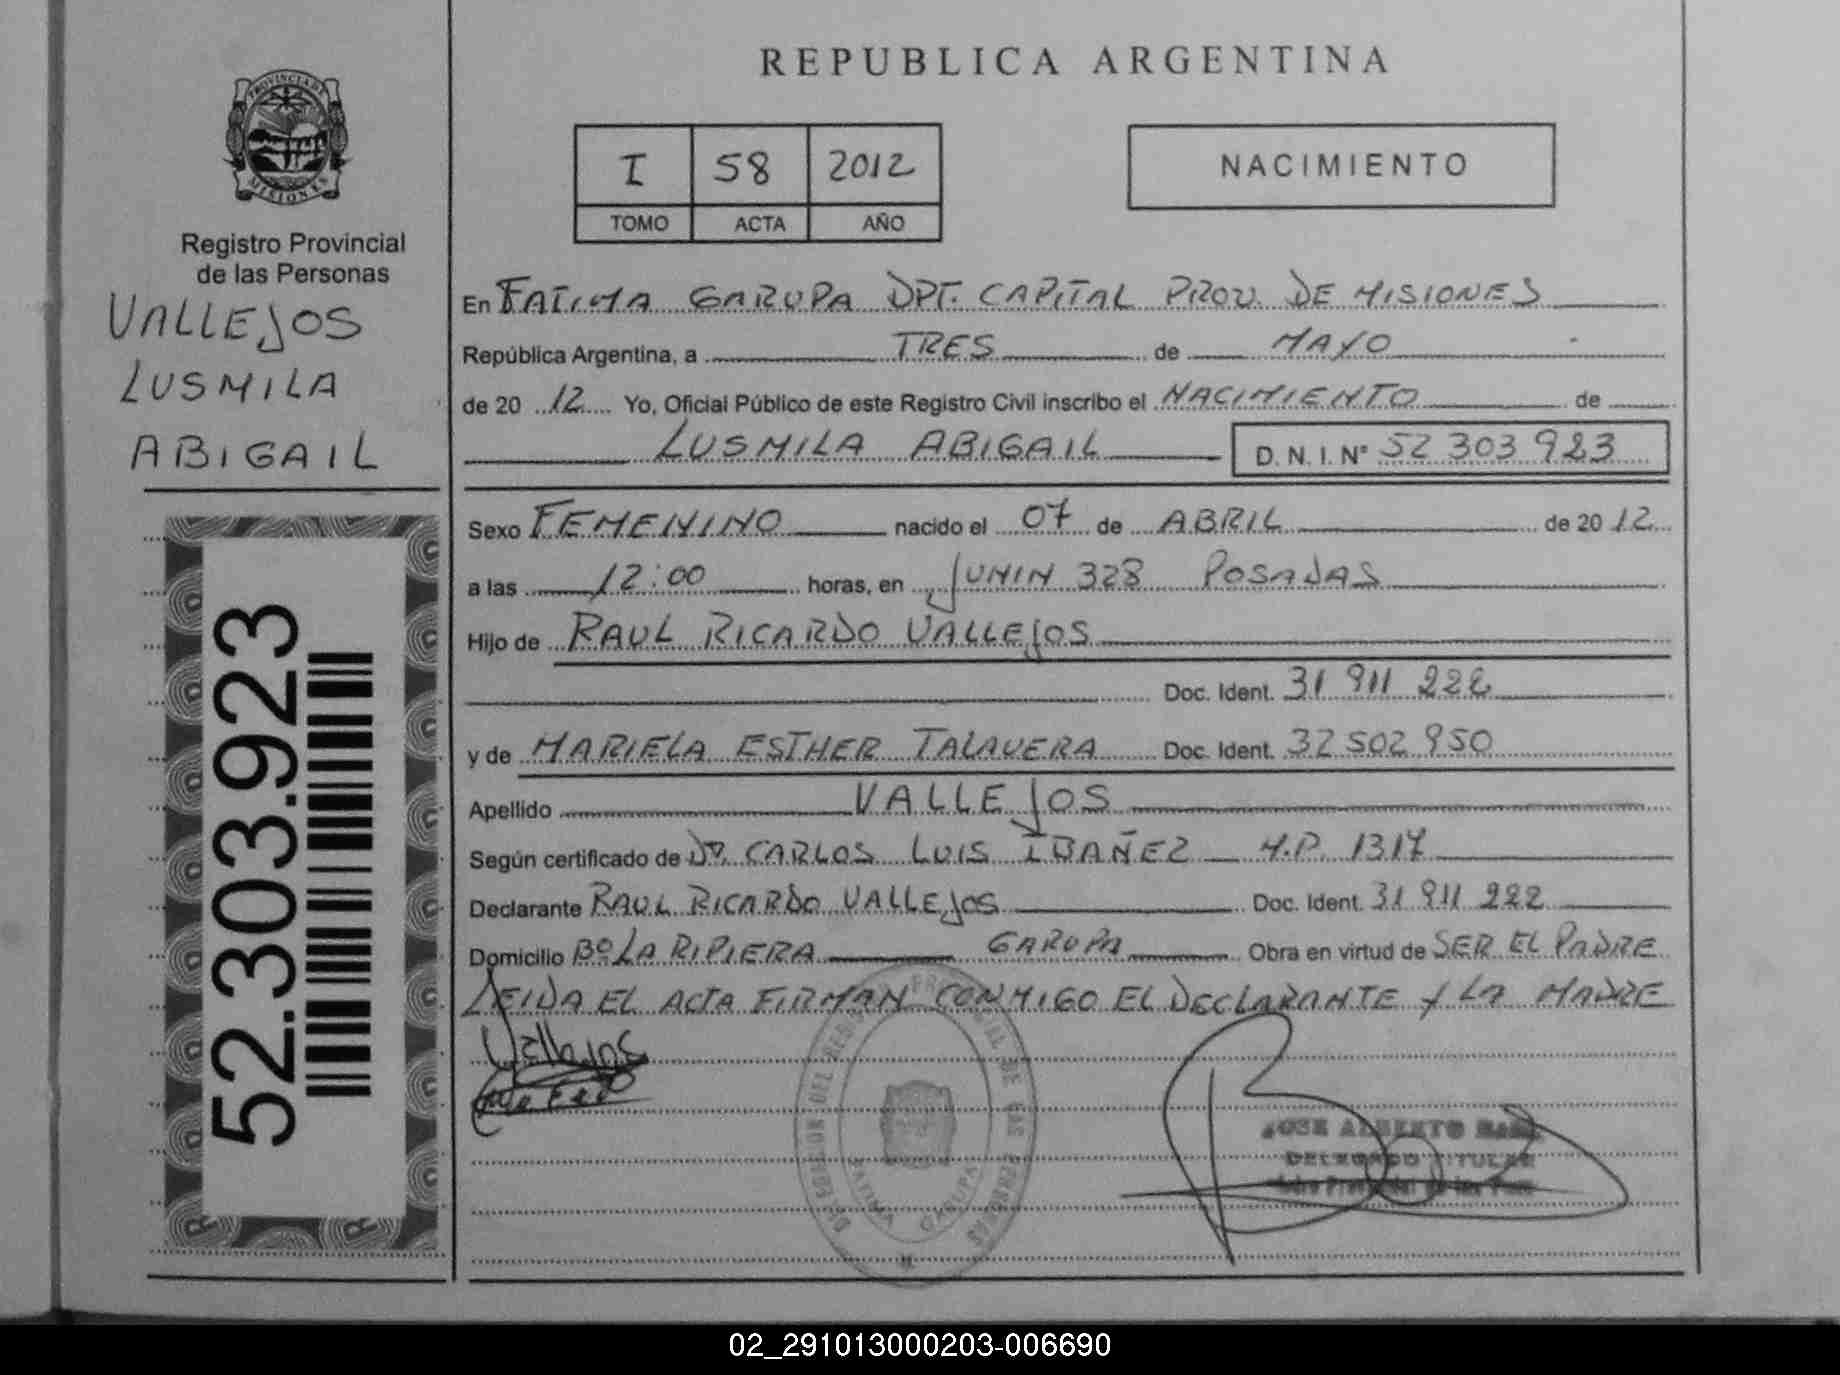 PROVINCIA DE
MISIONES
Registro Provincial
de las Personas
VALLEJOS
LUSMILA
ABIGAIL
52.303.923
REPUBLICA ARGENTINA
I 58 2012
TOMO ACTA AÑO
NACIMIENTO
En FATIMA GARUPA DPT. CAPITAL PROV. DE MISIONES
República Argentina, a TRES de MAYO
de 20 12 Yo, Oficial Público de este Registro Civil inscribo el NACIMIENTO de
LUSMILA ABIGAIL D. N. I. N° 52 303 923
Sexo FEMENINO nacido el 07 de ABRIL de 20 12
a las 12:00 horas, en JUNIN 328 POSADAS
Hijo de RAUL RICARDO VALLEJOS
Doc. Ident. 31 911 222
y de MARIELA ESTHER TALAVERA Doc. Ident. 32 502 950
Apellido VALLEJOS
Según certificado de Dr. CARLOS LUIS IBAÑEZ M.P. 1317
Declarante RAUL RICARDO VALLEJOS Doc. Ident. 31 911 222
Domicilio Bº LA RIPIERA GARUPA Obra en virtud de SER EL PADRE
LEIDA EL ACTA FIRMAN CONMIGO EL DECLARANTE Y LA MADRE
Vallejos
JOSE ALBERTO
DELEGADO TITULAR
02_291013000203-006690